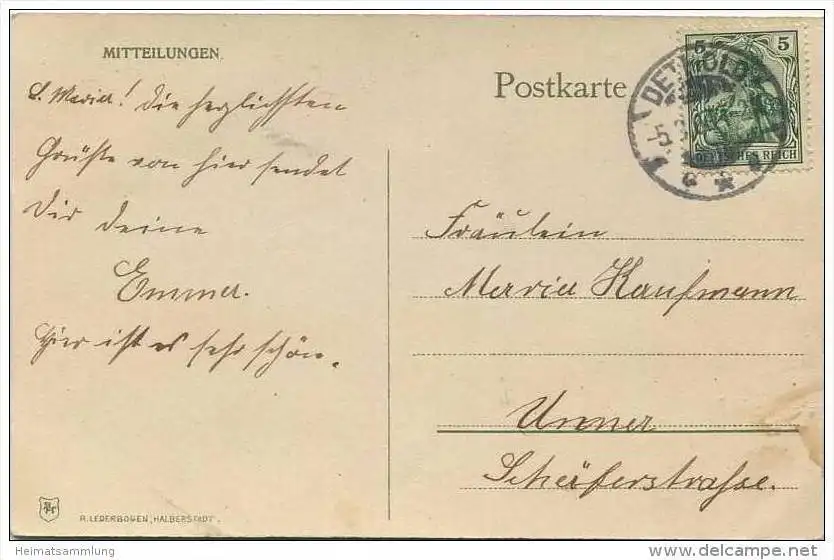 MITTEILUNGEN
Postkarte
L. Maria! Die herzlichsten
Grüße von hier sendet
Dir deine
Emma.
Hier ist es sehr schön.
5
5
DETMOLD
DEUTSCHES REICH
Fräulein
Maria Kaufmann
Unna
Schäferstrasse.
R. LEDERBOGEN, HALBERSTADT.
Heimatsammlung
www.delcampe.net